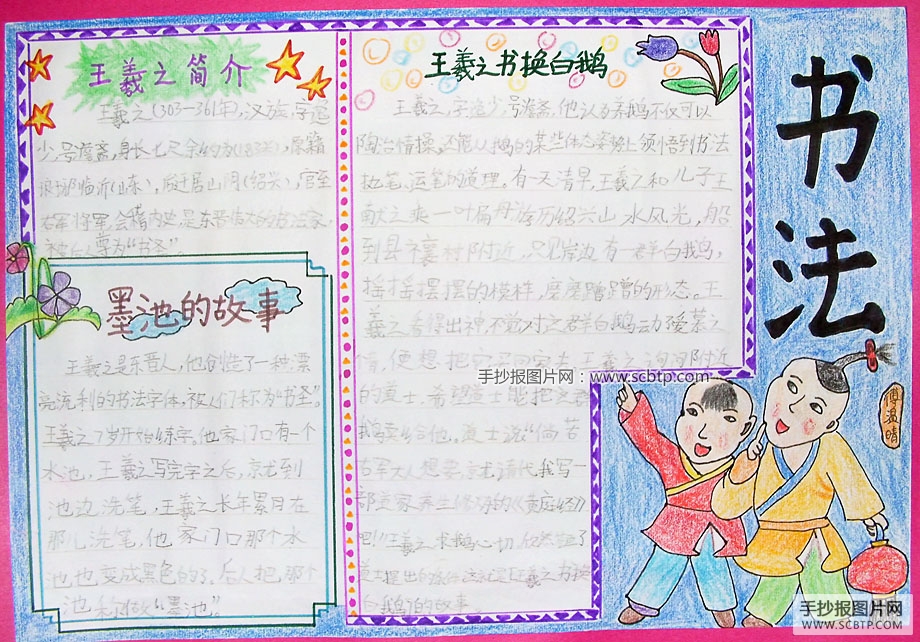 王羲之简介
王羲之(303-361年),汉族,字逸
少,号澹斋,身长七尺
临沂(山东),后迁居山阴(绍兴),官至
右军将军,会稽内史,是东晋伟大的书法家,
被后人尊为“书圣”
墨池的故事
王羲之是东晋人,他创造了一种漂
亮流利的书法字体,被人们称为“书圣”。
王羲之7岁开始练字,他家门口有一个
水池,王羲之写完字之后,就到
池边洗笔,王羲之长年累月在
那儿洗笔,他家门口那个水
池也变成黑色的了,后人把那个
池称做“墨池”。
王羲之书换白鹅
王羲之,字逸少,号澹斋,他认为养鹅不仅可以
陶冶情操,还能从鹅的某些体态姿势上领悟到书法
执笔,运笔的道理。有一天清早,王羲之和儿子王
献之乘一叶扁舟游历绍兴山水风光,船
到县禳村附近,只见岸边有一群白鹅,
摇摇摆摆的模样,磨磨蹭蹭的形态。王
羲之看得出神,不觉对这群白鹅动了爱慕之
情,便想把它买回家去。王羲之询问附近
的道士,希望道士能把这群
鹅卖给他。道士说:“倘若
右军大人想要,就请代我写一
部道家养生修炼的《黄庭经》
吧!”王羲之求鹅心切,欣然答应了
道士提出的条件,这就是王羲之书换
白鹅的故事。
书法
傅温晴
手抄报图片网:www.scbtp.com
手抄报图片网
WWW.SCBTP.COM